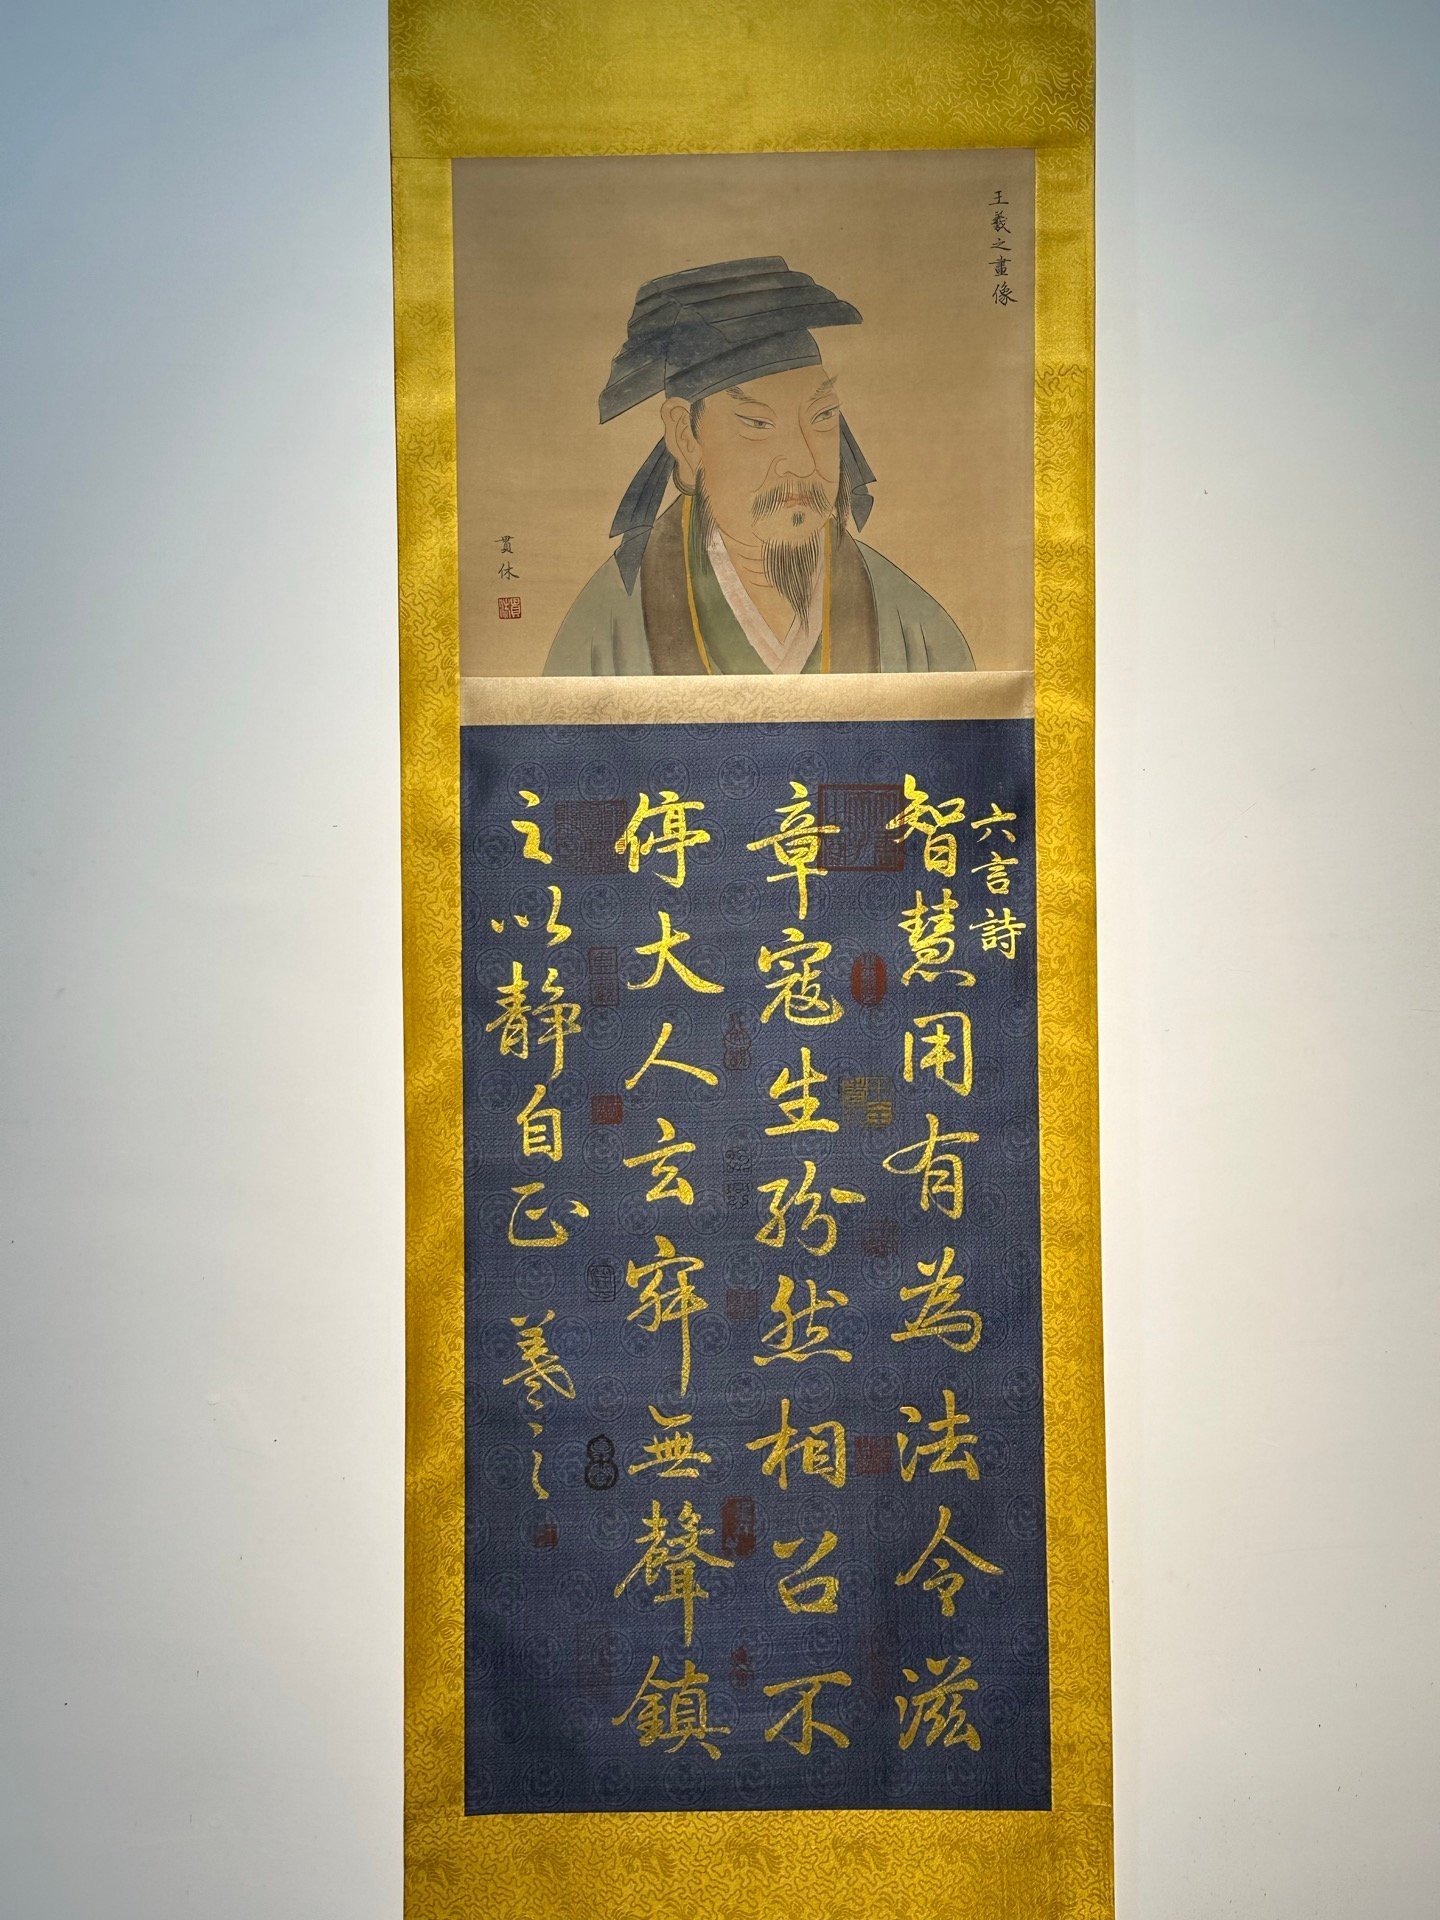 王羲之畫像
貫休
六言詩
智慧用有為法令滋
章寇生紛然相召不
停大人玄寂無聲鎮
之以靜自正
羲之